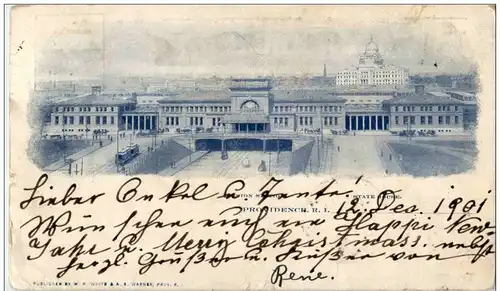 UNION STATION STATE HOUSE.
PROVIDENCE, R. I.
Lieber Onkel u. Tante! 12. Dec. 1901
Wünschen euch ein Happi New-
Jahr u. Merry Christmass. nebst
herzl. Grüßen u. Küssen von
Rene.
PUBLISHED BY W. R. WHITE & A. E. WARNER, PROV. R. I.